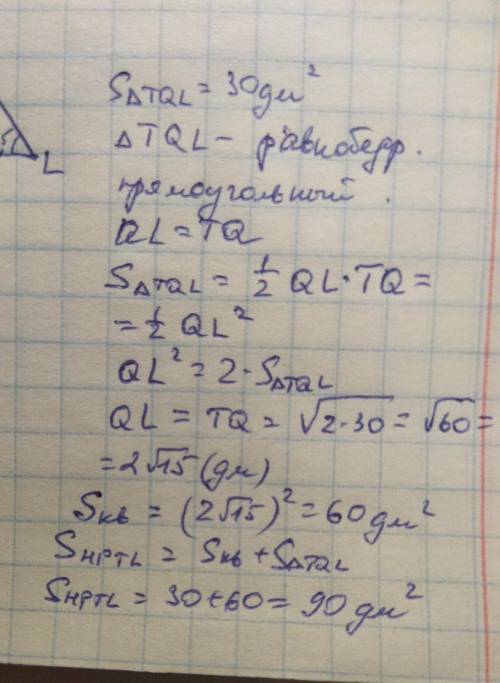 S△TQL = 30 дм²
△TQL – равнобедр.
прямоугольный.
QL = TQ
S△TQL = 1/2 QL·TQ =
= 1/2 QL²
QL² = 2·S△TQL
QL = TQ = √2·30 = √60 =
= 2√15 (дм)
Sкв = (2√15)² = 60 дм²
SНРТL = Sкв + S△TQL
SНРТL = 30+60 = 90 дм²
L